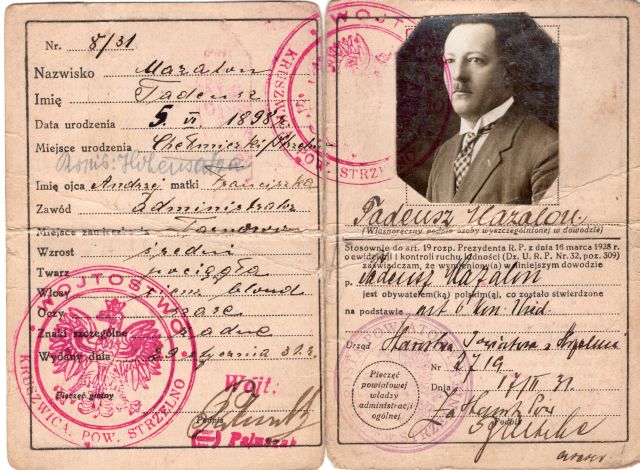 Nr. 8/31
Nazwisko Mazalon
Imię Tadeusz
Data urodzenia 5. VI 1898 r
Miejsce urodzenia Chełmiczki/Strzelno
Imię ojca Andrzej matki Franciszka
Zawód Administrator
Miejsce zamieszk.
Wzrost średni
Twarz pociągła
Włosy ciem. blond
Oczy szare
Znaki szczególne żadne
Wydany dnia 29 stycznia 31. r.
Pieczęć gminy
Podpis
Wójt.
WÓJTOSTWO
KRUSZWICA, POW. STRZELNO
WÓJTOSTWO
KRUSZWICA, POW. STRZELNO
Tadeusz Mazalon
(Własnoręczny podpis osoby wyszczególnionej w dowodzie)
Stosownie do art. 19 rozp. Prezydenta R. P. z dnia 16 marca 1928 r.
o ewidencji i kontroli ruchu ludności (Dz. U. R. P. Nr. 32, poz. 309)
zaświadczam, że wymieniony(a) w niniejszym dowodzie
p. Tadeusz Mazalon
jest obywatelem(ką) polskim(ą), co zostało stwierdzone
na podstawie art 6
Urząd Starostwo Powiatowe w Strzelnie
Nr 2719
Dnia 17/II 31
Pieczęć
powiatowej
władzy
administracji
ogólnej
Podpis